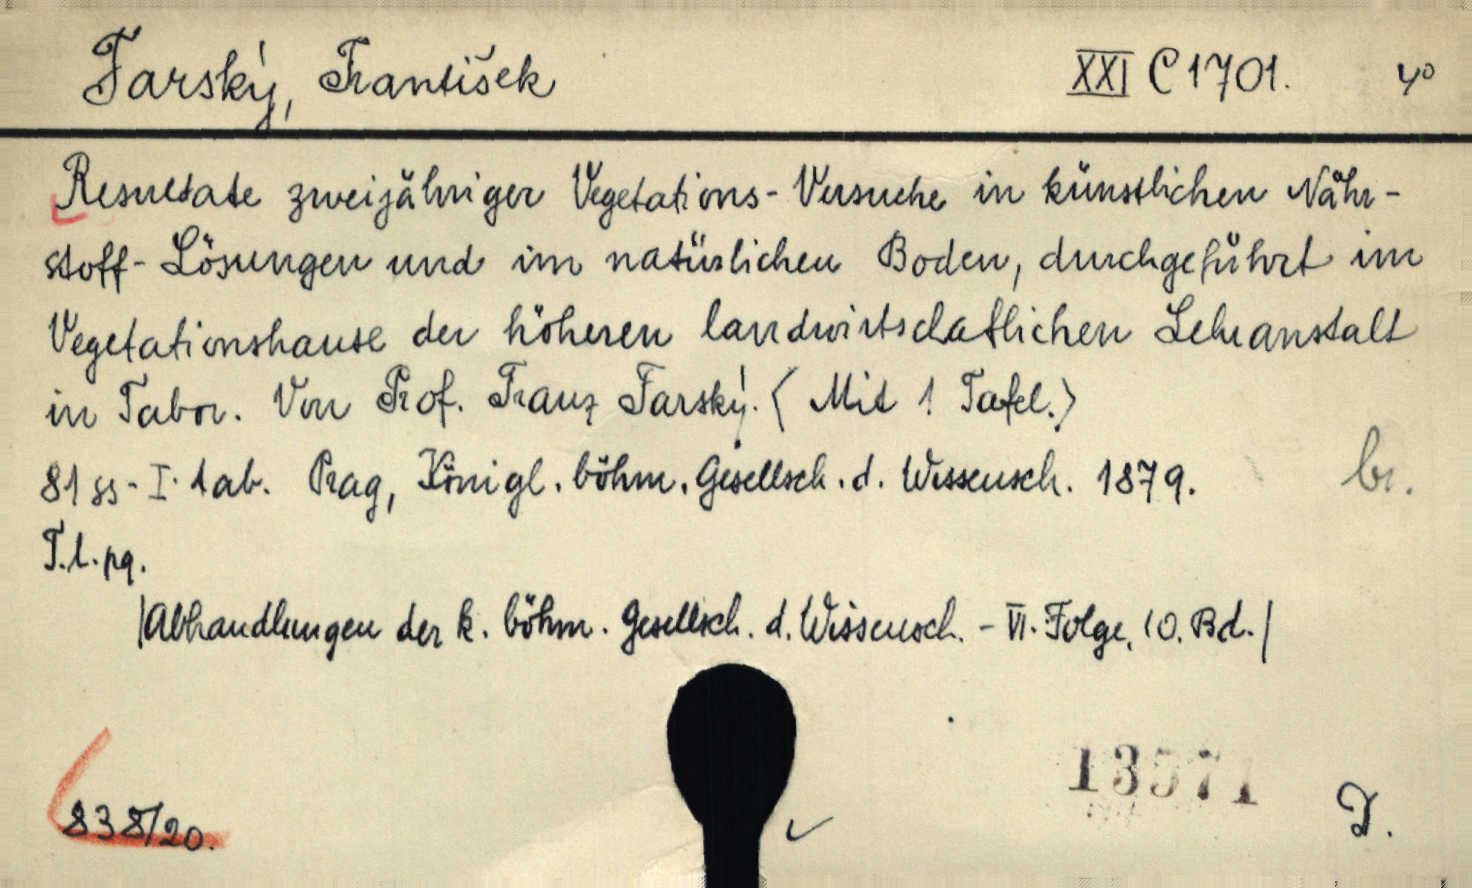 Farský, František XXI C 1701. 4°
Resultate zweijähriger Vegetations-Versuche in künstlichen Nähr-
stoff-Lösungen und im natürlichen Boden, durchgeführt im
Vegetationshause der höheren landwirtschatlichen Lehranstalt
in Tabor. Von Prof. Franz Farský. (Mit 1 Tafel.)
81 ss - I. tab. Prag, Königl. böhm. Gesellsch. d. Wissensch. 1879. br.
T. l. pg.
|Abhandlungen der k. böhm. Gesellsch. d. Wissensch. - VI. Folge, 10. Bd.|
13571
838/20. D.